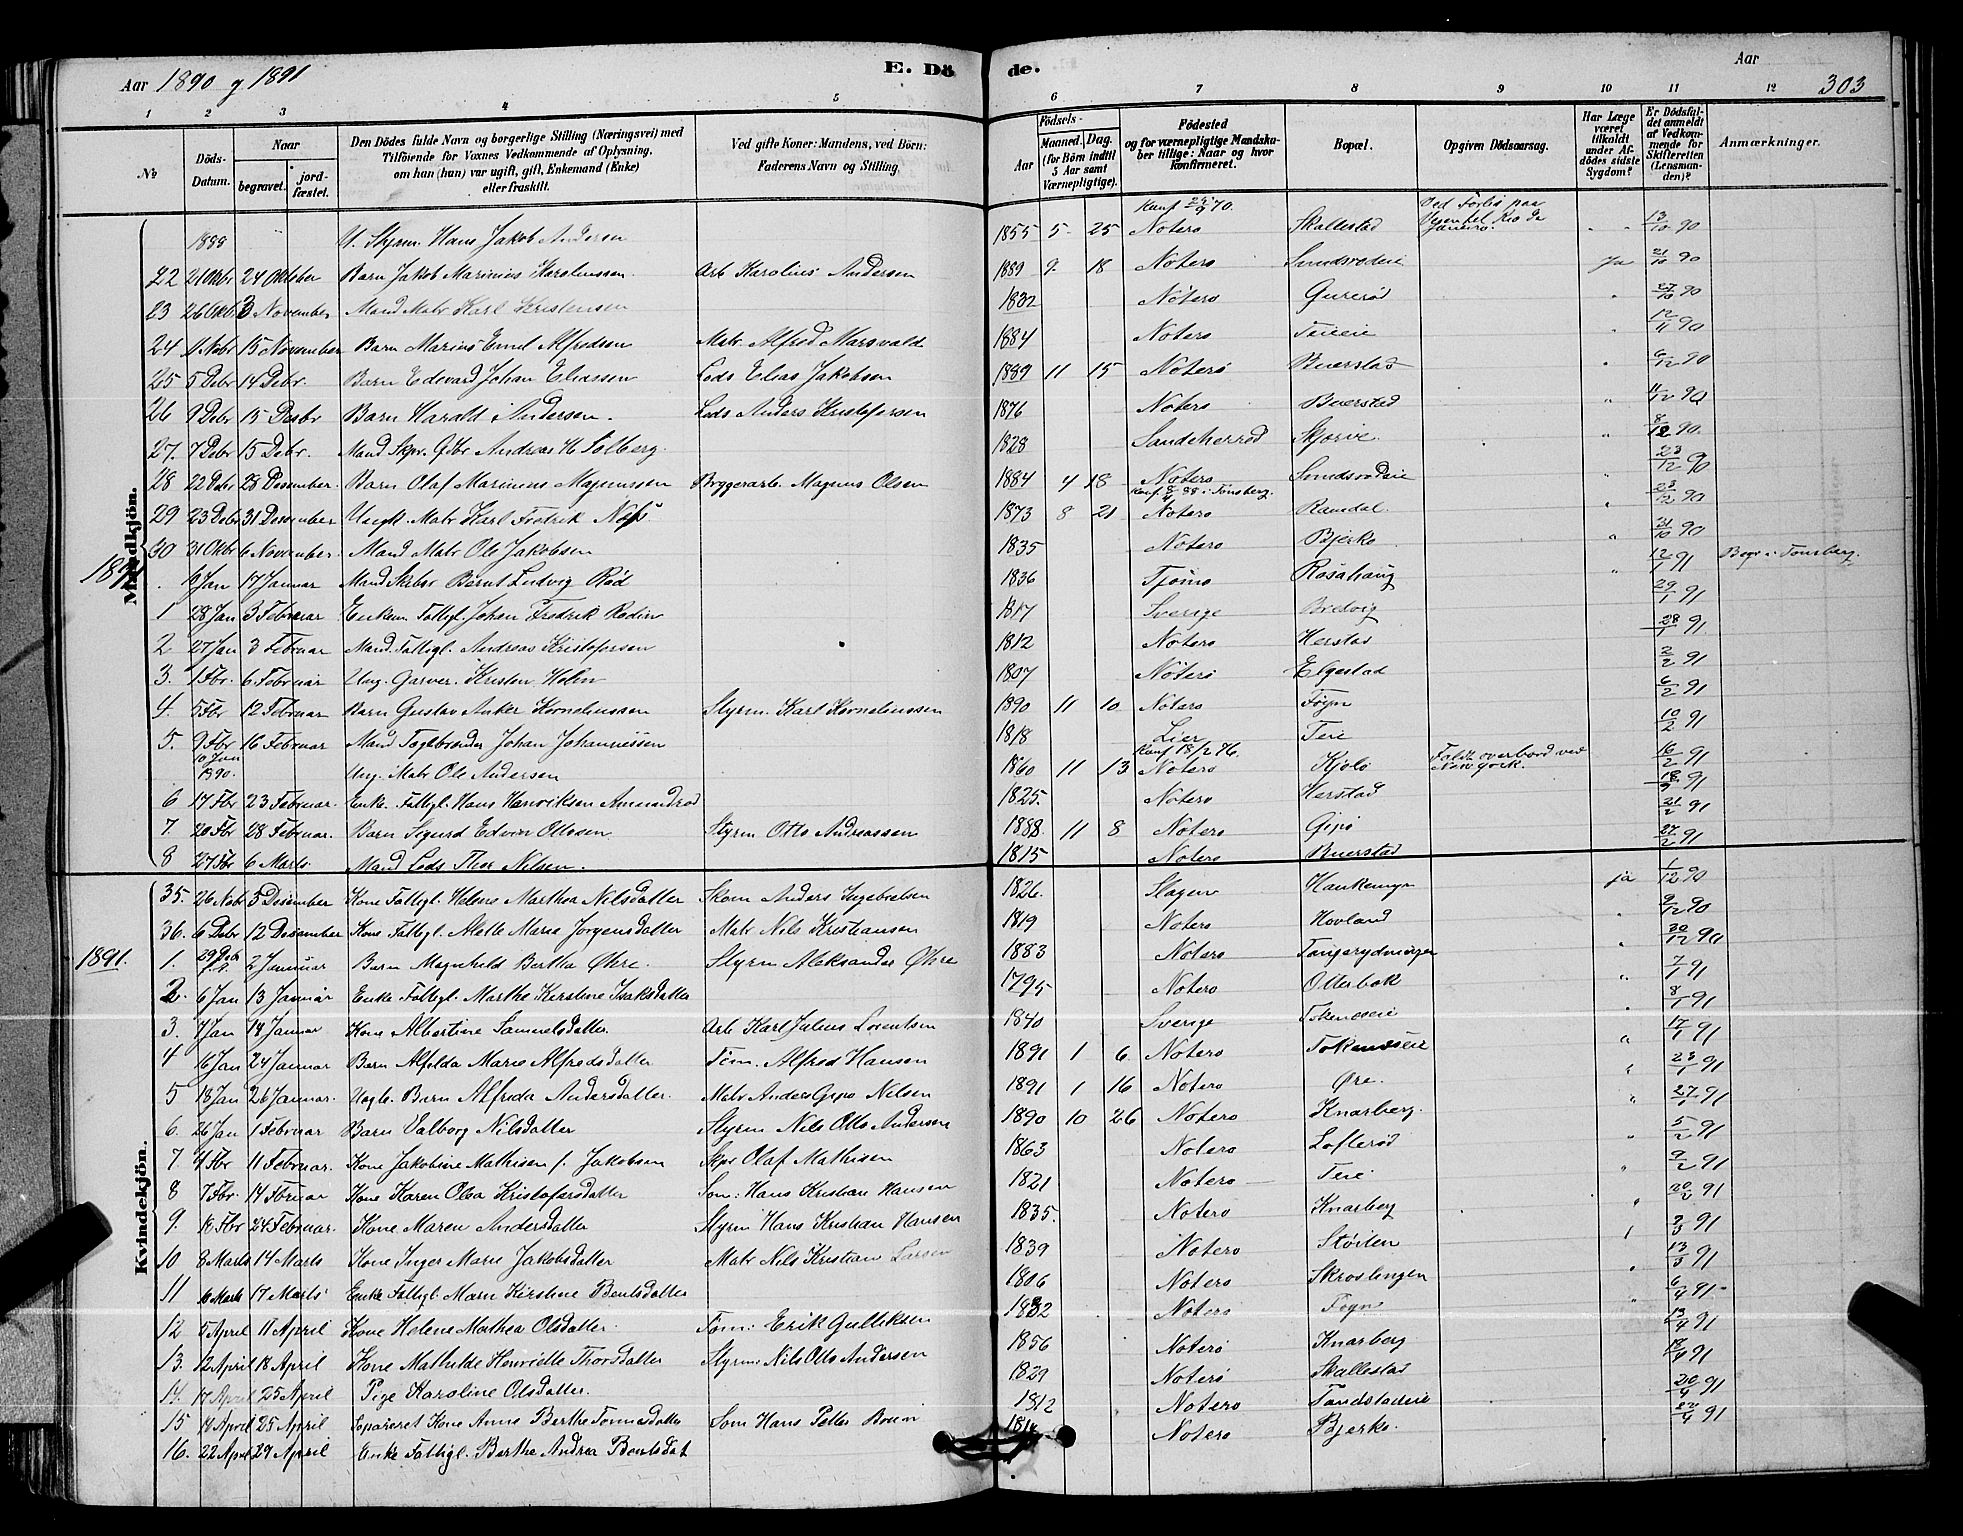 Aar 1890 g 1891
E. Döde.
Aar
303
1 2 3 4 5 6 7 8 9 10 11 12
No
Döds-Datum.
Naar begravet. jordfæstet.
Den Dödes fulde Navn og borgerlige Stilling (Næringsvei) med Tilföiende for Voxnes Vedkommende af Oplysning, om han (hun) var ugift, gift, Enkemand (Enke) eller fraskilt.
Ved gifte Koner: Mandens, ved Börn: Faderens Navn og Stilling.
Födsels- Aar Maaned. Dag. (for Börn indtil 5 Aar samt Værnepligtige).
Födested og for værnepligtige Mandskaber tillige: Naar og hvor konfirmeret.
Bopæl.
Opgiven Dödsaarsag.
Har Læge været tilkaldt under Afdödes sidste Sygdom?
Er Dödsfaldet anmeldt af Vedkommende for Skifteretten (Lensmanden)?
Anmærkninger.
Mandkjön.
U. Styrm. Hans Jakob Andersen 1855 5 25 Nøterø Skallestad 13/10 90
22 21 Oktbr 24 Oktober Barn Jakob Marinius Karoliussen Arb Karolius Andersen 1889 9 18 Nøterø Ja 21/10 90
23 26 Oktb 3 November Mand Matr Karl Kristensen 1832 Nøterø 27/10 90
24 11 Nobr 15 November Barn Marius Emil Alfredsen Matr Alfred Marsvald 1884 Nøterø Teieeie 12/11 90
25 5 Debr 14 Debr. Barn Edevard Johan Eliassen Lods Elias Jakobsen 1889 11 15 Nøterø Buerstad 6/12 90
26 9 Debr 15 Debr Barn Harald Andersen. Lods Anders Kristofersen 1876 Nøterø Buerstad 11/12 90
27. 7 Debr 15 Debr. Mand Skpr. Gbr Andreas H Solberg. 1828 Sandeherred 8/12 90.
28 22 Debr 28 Desember. Barn Olaf Marinius Magnussen Bryggerarb. Magnus Olsen 1884 4 18 Nøterø 23/12 90
29 23 Debr 31 Desember Ungk. Matr Karl Fredrik Næss 1873 8 21 Nøterø Ramdal. 23/12 90
30 31 Oktbr 6 November. Mand Matr Ole Jakobsen 1835 Nøterø Bjerkø 31/10 90
Jan 17 Januar Mand Skibsr Bernt Ludvig Rød 1836 Tjømø Rosahaug 12/1 91 Begr i Tønsberg.
1 28 Jan 3 Februar Enkem Fattigl. Johan Fredrik Rodin 1817 Sverige Bredvig 29/1 91
2 27 Jan 3 Februar Mand Fattigl. Andreas Kristofersen 1812 Nøterø Herstad 28/1 91
3. 1 Fbr. 6 Februar Ung. Garver. Kristen Holm 1807 Nøterø Elgestad 2/2 91
4. 5 Fbr 12 Februar Barn Gustav Anker Korneliussen Styrm. Karl Korneliussen 1890 11 10 Nøterø Føyn 6/2 91
5. 9 Fbr 16 Februar Mand Johan Johannessen 1818 Lier Teie 10/2 91
10 Jan 1890. Ung. Matr Ole Andersen 1860 11 13 Konf 18/2 76. Nøterø Kjøle Faldt overbord ved New York. 16/2 91
6 17 Fbr 23 Februar. Enke. Fattigl. Hans Henriksen Amundrød 1825. Nøterø Herstad
7. 20 Fbr 28 Februar. Barn Sigurd Edvin Ottosen Styrm Otto Andreassen 1888. 11 8 Nøterø Gipø 21/2 91
8 27 Fbr 6 Marts Mand Lods Thor Nilsen. 1815 Nøterø Buerstad 27/2 91
Kvindekjön.
35. 26 Nobr 5 Desember Kone Fattigl. Helene Marthea Nilsdatter Skom Anders Ingebretsen 1826. Slagen Haukemyr ja 1/12 90
36. 6 Debr 12 Desember Kone Fattigl. Alette Maria Jørgensdatter Matr Nils Kristiansen 1819 Nøterø Hovland 9/12 90
1891. 1. 29 Debr 2 Januar Barn Magnhild Bertha Øhre. Styrm Aleksander Øhre 1883 Nøterø 30/12 90
2. 6 Jan 13 Januar Enke Fattigl. Marthe Kirstine Isaksdatter 1795 Nøterø Otterbæk 7/1 91
3. 7 Jan 14 Januar Kone Albertine Samuelsdatter Arb Karl Julius Lorentsen 1840 Sverige 8/1 91
4 16 Jan 24 Januar Barn Alfilda Marie Alfredsdatter Tøm. Alfred Hansen 1891 1 6. Nøterø 17/1 91
5 18 Jan 26 Januar. Uægte Barn Alfreda Andersdatter. Matr Anders Gipø Nilsen 1891 1 16 Nøterø Øre. 23/1 91
6. 26 Jan 1 Februar Barn Valborg Nilsdatter Styrm Nils Otto Andersen 1890 10 26 Nøterø Knarberg. 27/1 91
7 4 Fbr 11 Februar. Kone Jakobine Mathisen f. Jakobsen Skpr Olaf Mathisen 1863 Nøterø Lofterød 5/2 91
8 7 Fbr. 14 Februar Kone Karen Olea Kristofersdatter Søm: Hans Kristian Hansen 1821 Nøterø Teie 9/2 91
9. Fbr 24 Februar. Kone Maren Andersdatter Styrm Hans Kristian Hansen 1835. Nøterø Knarberg 20/2 91
10 8 Marts 14 Marts Kone Inger Marie Jakobsdatter Matr Nils Kristian Larsen 1839 Nøterø Støiten
11 Marts 17 Marts Enke Fattigl. Maren Kirstine Bentsdatter 1806 Nøterø 13/3 91
12 5 April 11 April Kone Helene Mathea Olsdatter. Tøm: Erik Gulliksen Nøterø Føyn 6/4 91
13. 12 April 18 April Kone Mathilde Henriette Thorsdatter Styrm: Nils Otto Andersen 1856 Nøterø Knarberg 13/4 91
14. 17 April 25 April Pige Karoline Olsdatter. 1829 Nøterø Skallestad
15 April 25 April Separeret Kone Anne Berthe Tommesdatter Søm Hans Petter Bruun 1812 Nøterø 20/4 91
16. 22 April 29 April Enke Fattigl. Berthe Andrea Bentsdat Nøterø Bjerkø. 22/4 91